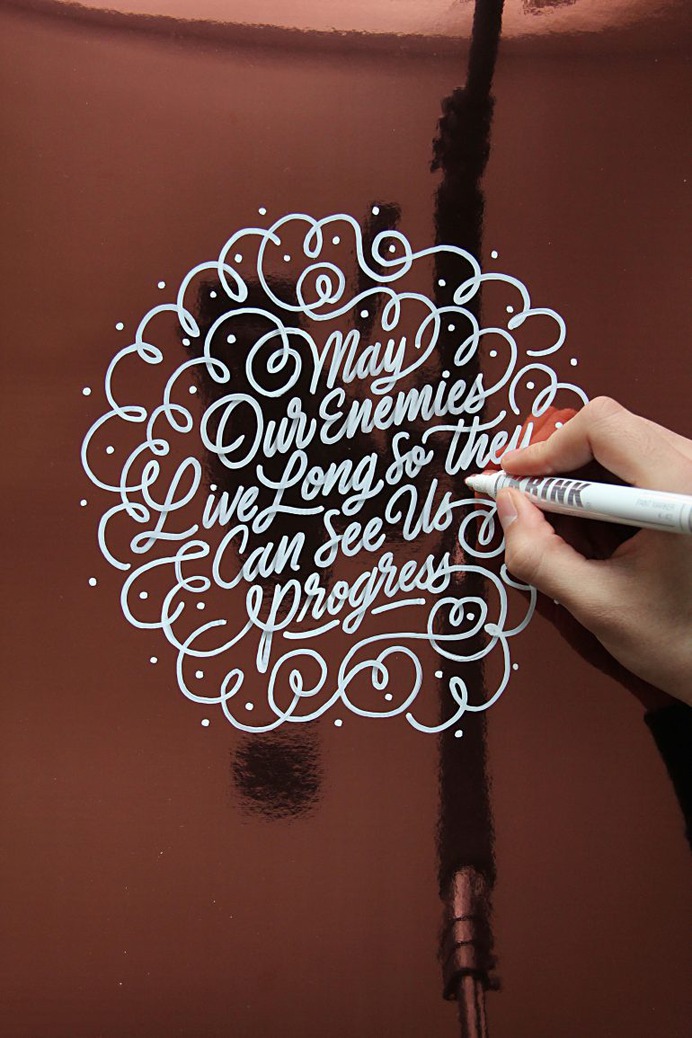 May
Our Enemies
Live Long So They
Can See Us
Progress
KRINK